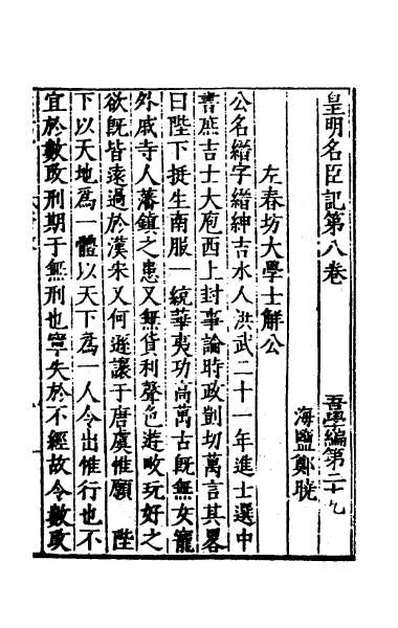 皇明名臣記第八卷
吾學編第二十九
海鹽鄭曉
左春坊大學士解公
公名縉字縉紳吉水人洪武二十一年進士選中
書庶吉士大庖西上封事論時政剴切萬言其畧
曰陛下挺生南服一統華夷功高萬古既無女寵
外戚寺人藩鎮之患又無貨利聲色遊畋玩好之
欲既皆遠過於漢宋又何遜讓于唐虞惟願陛
下以天地爲一體以天下爲一人令出惟行也不
宜於數改刑期于無刑也寧失於不經故令數改